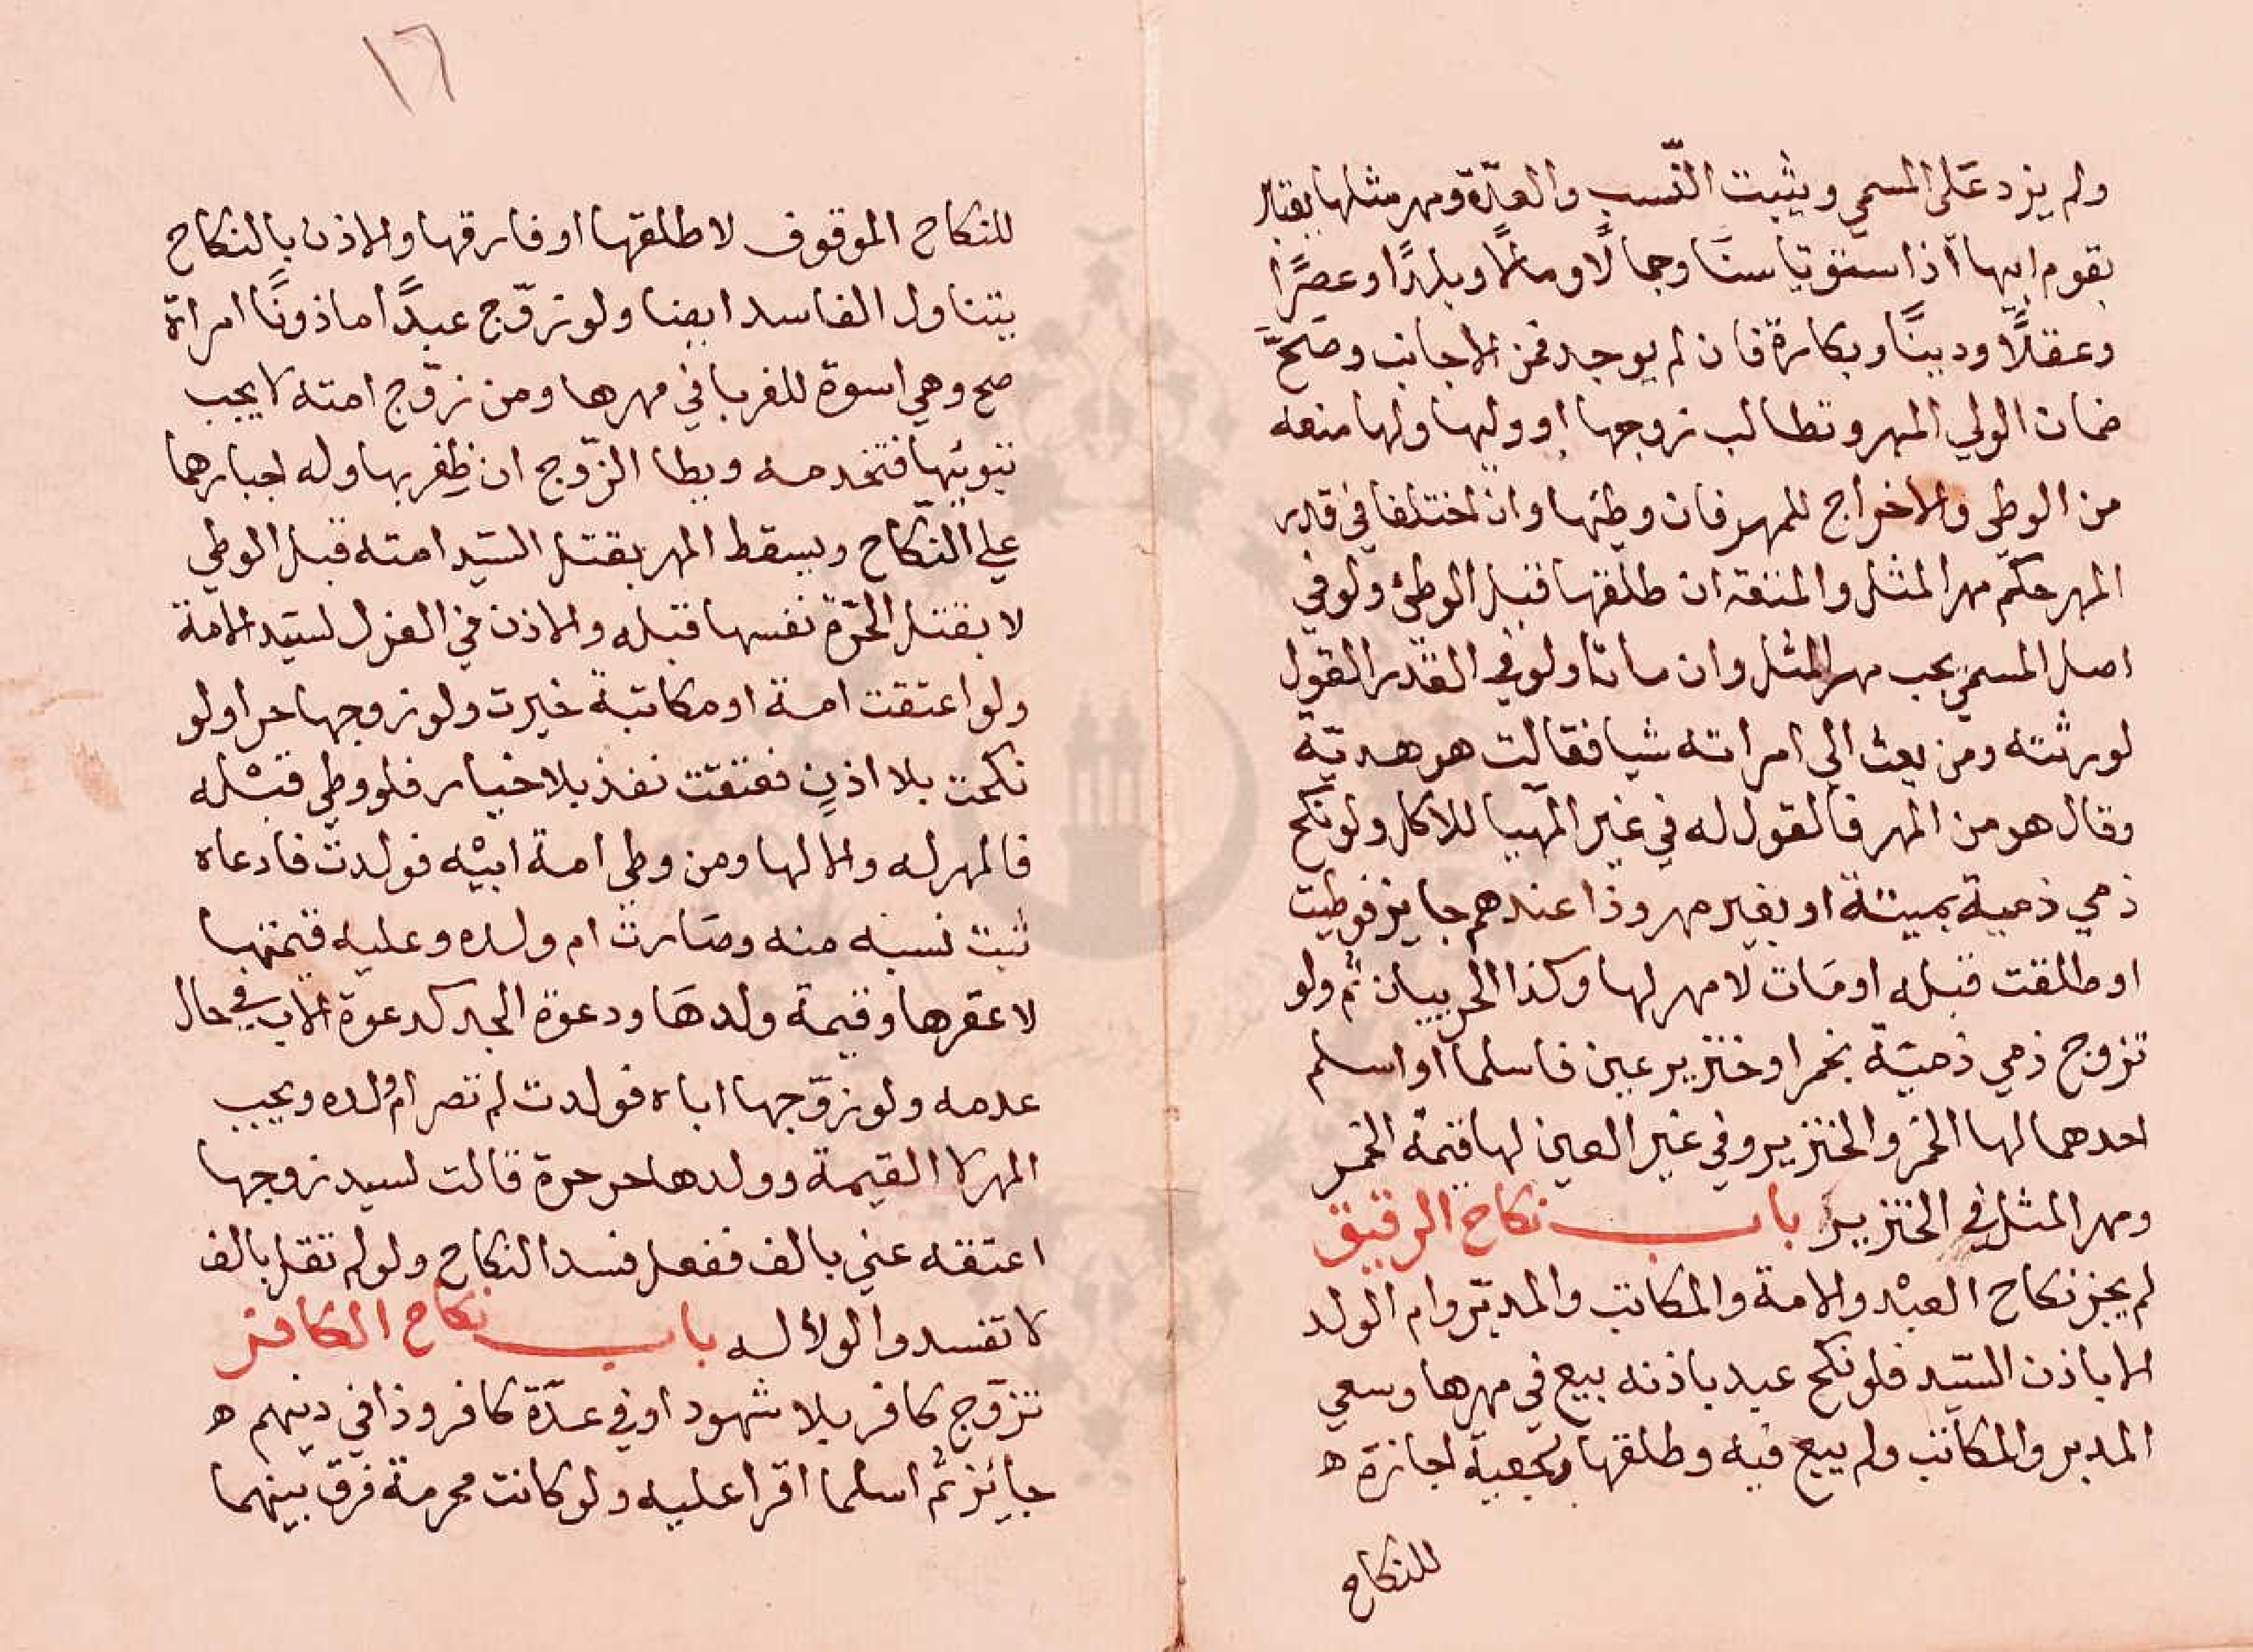 ولم يزد على المسمي ويثبت النّسب والعدّة ومهر مثلها يعتبر
بقوم ابيها اذا استوتيا سنًا وجمالًا ومالًا وبلدًا وعصرًا
وعقلًا ودينًا وبكارة فان لم يوجد فمن الاجانب وصَحَّ
ضمان الولي المهر وتطالب زوجها او وليها ولها منعه
من الوطي والاخراج للمهر فان وطئها وان اختلفا في قدر
المهر حكم مهر المثل والمتعة ان طلقها قبل الوطئ ولو في
اصل المسمي يجب مهر المثل وان ماتا ولو في القدر القول
لورثته ومن بعث الي امراته شيا فقالت هو هديّة
وقال هو من المهر فالقول له في غير المهيا للاكل ولو نكح
ذمي ذمية بميتة او بغير مهر وذا عندهم جايز فوطيت
او طلقت قبله او مات لا مهر لها وكذا الحربيان ثم ولو
تزوج ذمي ذميّة بخمر او خنزير عين فاسلما او اسلم
احدهما لها الخمر والخنزير وفي غير العين لها قيمة الخمر
ومهر المثل في الخنزير باب نكاح الرقيق
لم يجز نكاح العبْد والامة والمكاتب والمدبّر وام الولد
الا باذن السّيد فلو نكح عبد باذنه بيع في مهرها وسعي
المدبر والمكاتب ولم يبع فيه وطلقها رجعية اجازة ه
للنكاح
١٦
للنكاح الموقوف لا طلقها او فارقها والاذن بالنكاح
يتناول الفاسد ايضا ولو زوّج عبدًا ماذونًا امراة
صح وهي اسوة للغرما في مهرها ومن زوّج امته لا يجب
تبويئها فتخدمه ويطا الزّوج ان ظفر بها وله اجبارهما
علي النّكاح ويسقط المهر بقتل السّيد امته قبل الوطي
لا بقتل الحرّة نفسها قبله والاذن في العزل لسيّد الامة
ولو اعتقت امة او مكاتبة خيرت ولو زوجها حرا ولو
نكحت بلا اذنٍ فعتقت نفذ بلا خيار فلو وطي قبْله
فالمهر له والا لها ومن وطي امة ابنْه فولدت فادعاه
ثبت نسبه منه وصَارت ام ولده وعليه قيمتها
لا عقرها وقيمة ولدهَا ودعوة الجد كدعوة الاب في حال
عدمه ولو زوّجها اباه فولدت لم تصر ام ولده ويجب
المهر لا القيمة وولدها حر حرة قالت لسيد زوجها
اعتقه عني بالف ففعل فسد النكاح ولو لم تقل بالف
لا تفسد والولاله باب نكاح الكافر
تزوّج كافر بلا شهود او في عدّة كافر وذا في دينهم ه
جائز ثم اسلما اقرا عليه ولو كانت محرمة فرق بينهما